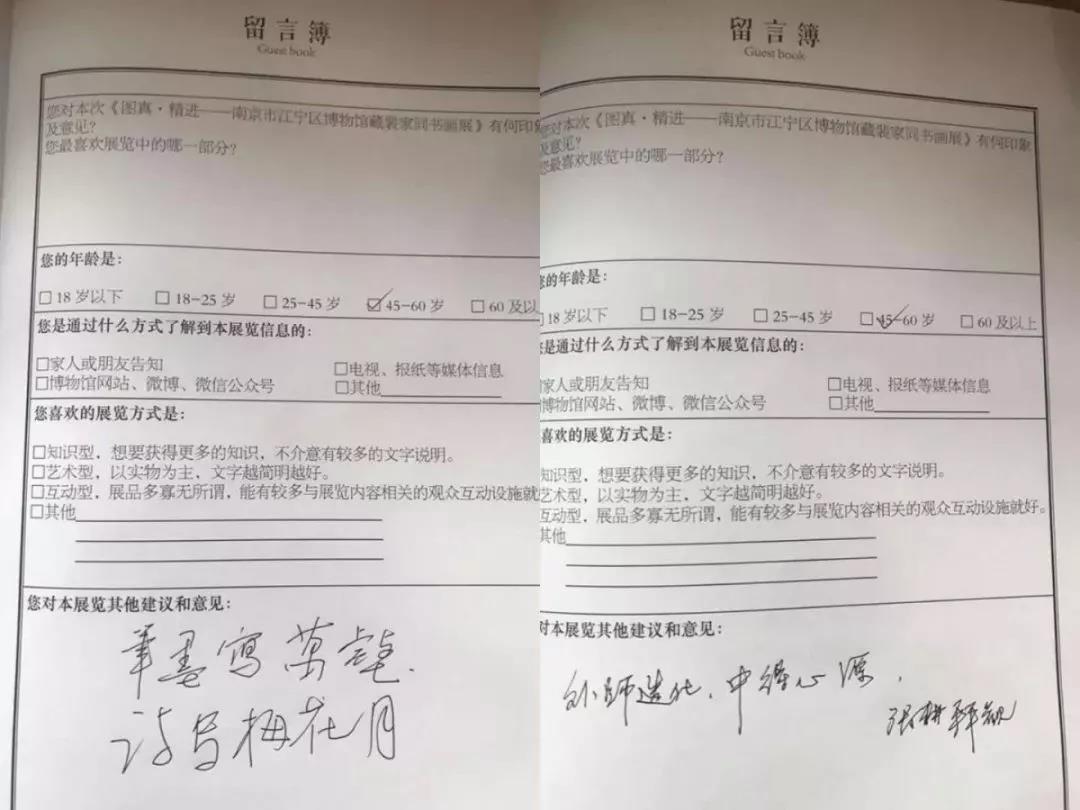 留言簿
Guest book
您对本次《图真·精进——南京市江宁区博物馆藏裴家同书画展》有何印象
及意见?
您最喜欢展览中的哪一部分?
您的年龄是:
□ 18 岁以下 □ 18-25 岁 □ 25-45 岁 ☑ 45-60 岁 □ 60 及以
您是通过什么方式了解到本展览信息的:
□家人或朋友告知 □电视、报纸等媒体信息
□博物馆网站、微博、微信公众号 □其他
您喜欢的展览方式是:
□知识型，想要获得更多的知识，不介意有较多的文字说明。
□艺术型，以实物为主，文字越简明越好。
□互动型，展品多寡无所谓，能有较多与展览内容相关的观众互动设施就
□其他
您对本展览其他建议和意见:
筆墨寫萬壑.
诗写梅花月
留言簿
Guest book
您对本次《图真·精进——南京市江宁区博物馆藏裴家同书画展》有何印象
及意见?
您最喜欢展览中的哪一部分?
您的年龄是:
□ 18 岁以下 □ 18-25 岁 □ 25-45 岁 ☑ 45-60 岁 □ 60 及以上
您是通过什么方式了解到本展览信息的:
家人或朋友告知 □电视、报纸等媒体信息
博物馆网站、微博、微信公众号 □其他
喜欢的展览方式是:
知识型，想要获得更多的知识，不介意有较多的文字说明。
艺术型，以实物为主，文字越简明越好。
互动型，展品多寡无所谓，能有较多与展览内容相关的观众互动设施就好。
其他
对本展览其他建议和意见:
外师造化，中得心源，
张